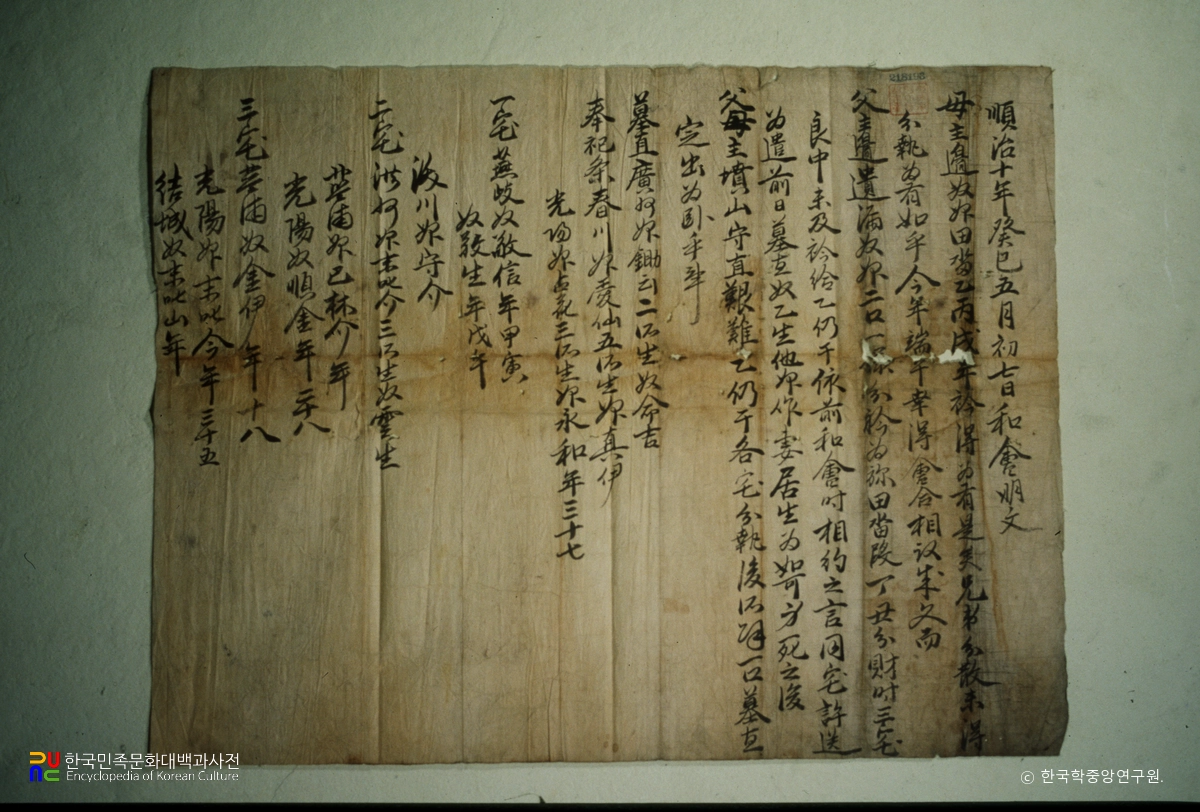 順治十年癸巳五月初七日和會明文
母主邊奴婢田畓乙丙戌年衿得為有是矣兄弟分散未得
分執為有如乎今年端午幸得會合相議成文而
父主邊遺漏奴婢二口一依分衿為旀田畓段丁丑分財時三宅
良中未及衿給乙仍于依前和會時相約之言同宅許送
為遣前日墓直奴乙生他婢作妻居生為如可身死之後
父母主墳山守直艱難乙仍于各宅分執後所餘一口墓直
定出為臥乎事
墓直廣州婢鋤云二所生奴命吉
奉祀条春川婢愛仙五所生婢真伊
光陽婢 三所生婢永和年三十七
一宅蕪岐奴敬信年甲寅
奴敬生年戊午
汝川婢守介
二宅洪州婢末叱介三所生奴雲生
芒浦婢已林介年
光陽奴順金年二十八
三宅芒浦奴金伊年十八
光陽婢末叱今年三十五
結城奴末叱山年
218196
한국민족문화대백과사전
Encyclopedia of Korean Culture
© 한국학중앙연구원.